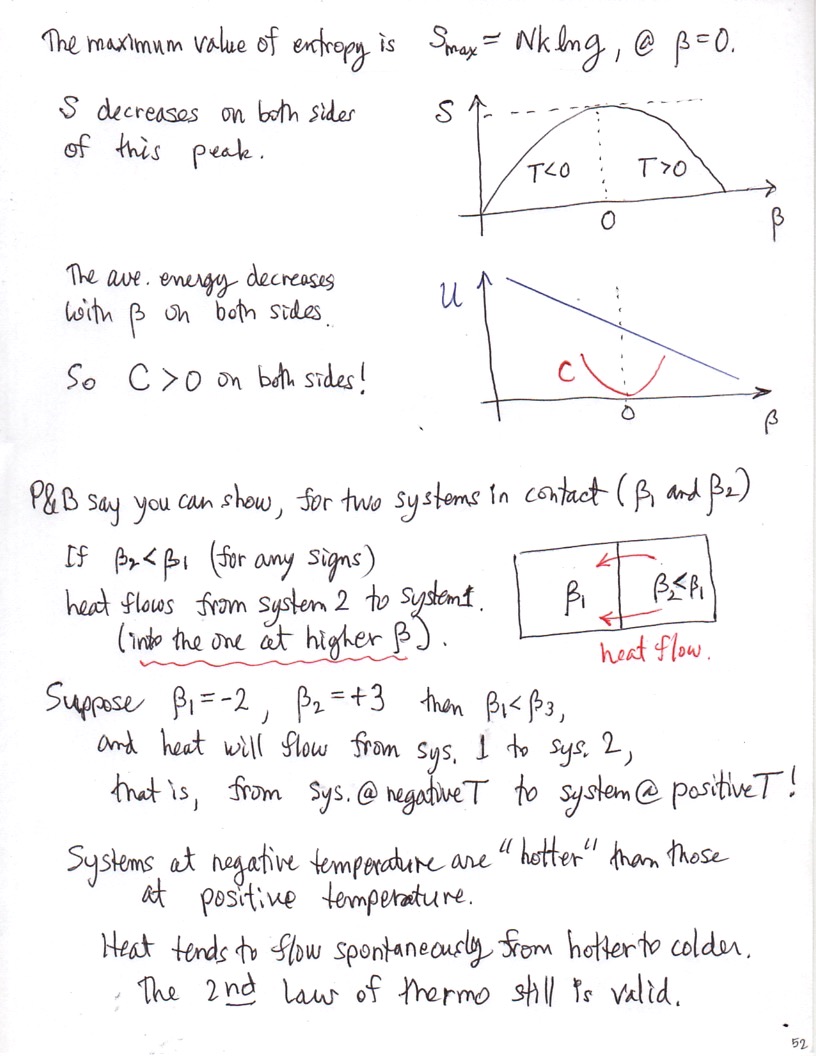 The maximum value of entropy is Smax = Nk ln g, @ β=0.
S decreases on both sides
of this peak.
S
T<0 T>0
0
β
The ave. energy decreases
with β on both sides.
So C>0 on both sides!
U
C
0
β
P&B say you can show, for two systems in contact (β1 and β2)
If β2<β1 (for any signs)
heat flows from system 2 to system 1.
(into the one at higher β).
β1 β2<β1
heat flow.
Suppose β1=-2, β2=+3 then β1<β3,
and heat will flow from sys. 1 to sys. 2,
that is, from sys. @ negative T to system @ positive T!
Systems at negative temperature are "hotter" than those
at positive temperature.
Heat tends to flow spontaneously from hotter to colder.
The 2nd Law of thermo still is valid.
52